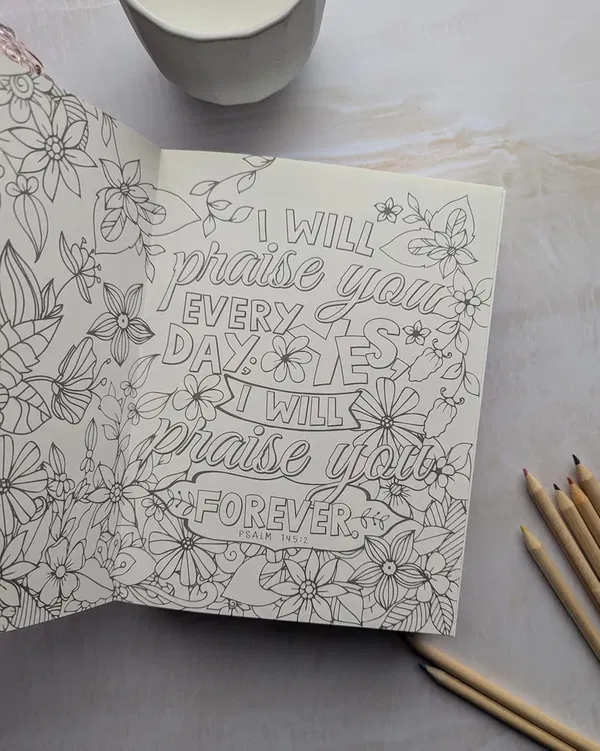 I WILL
praise you
EVERY
DAY; YES,
I WILL
praise you
FOREVER.
PSALM 145:2